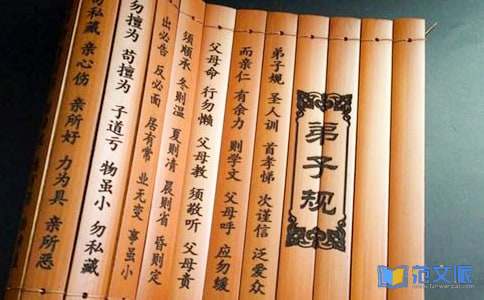 弟子规
弟子规 圣人训 首孝悌 次谨信 泛爱众
而亲仁 有余力 则学文 父母呼 应勿缓
父母命 行勿懒 父母教 须敬听 父母责
须顺承 冬则温 夏则清 晨则省 昏则定
出必告 反必面 居有常 业无变 事虽小
勿擅为 苟擅为 子道亏 物虽小 勿私藏
勿私藏 亲心伤 亲所好 力为具 亲所恶
范文派